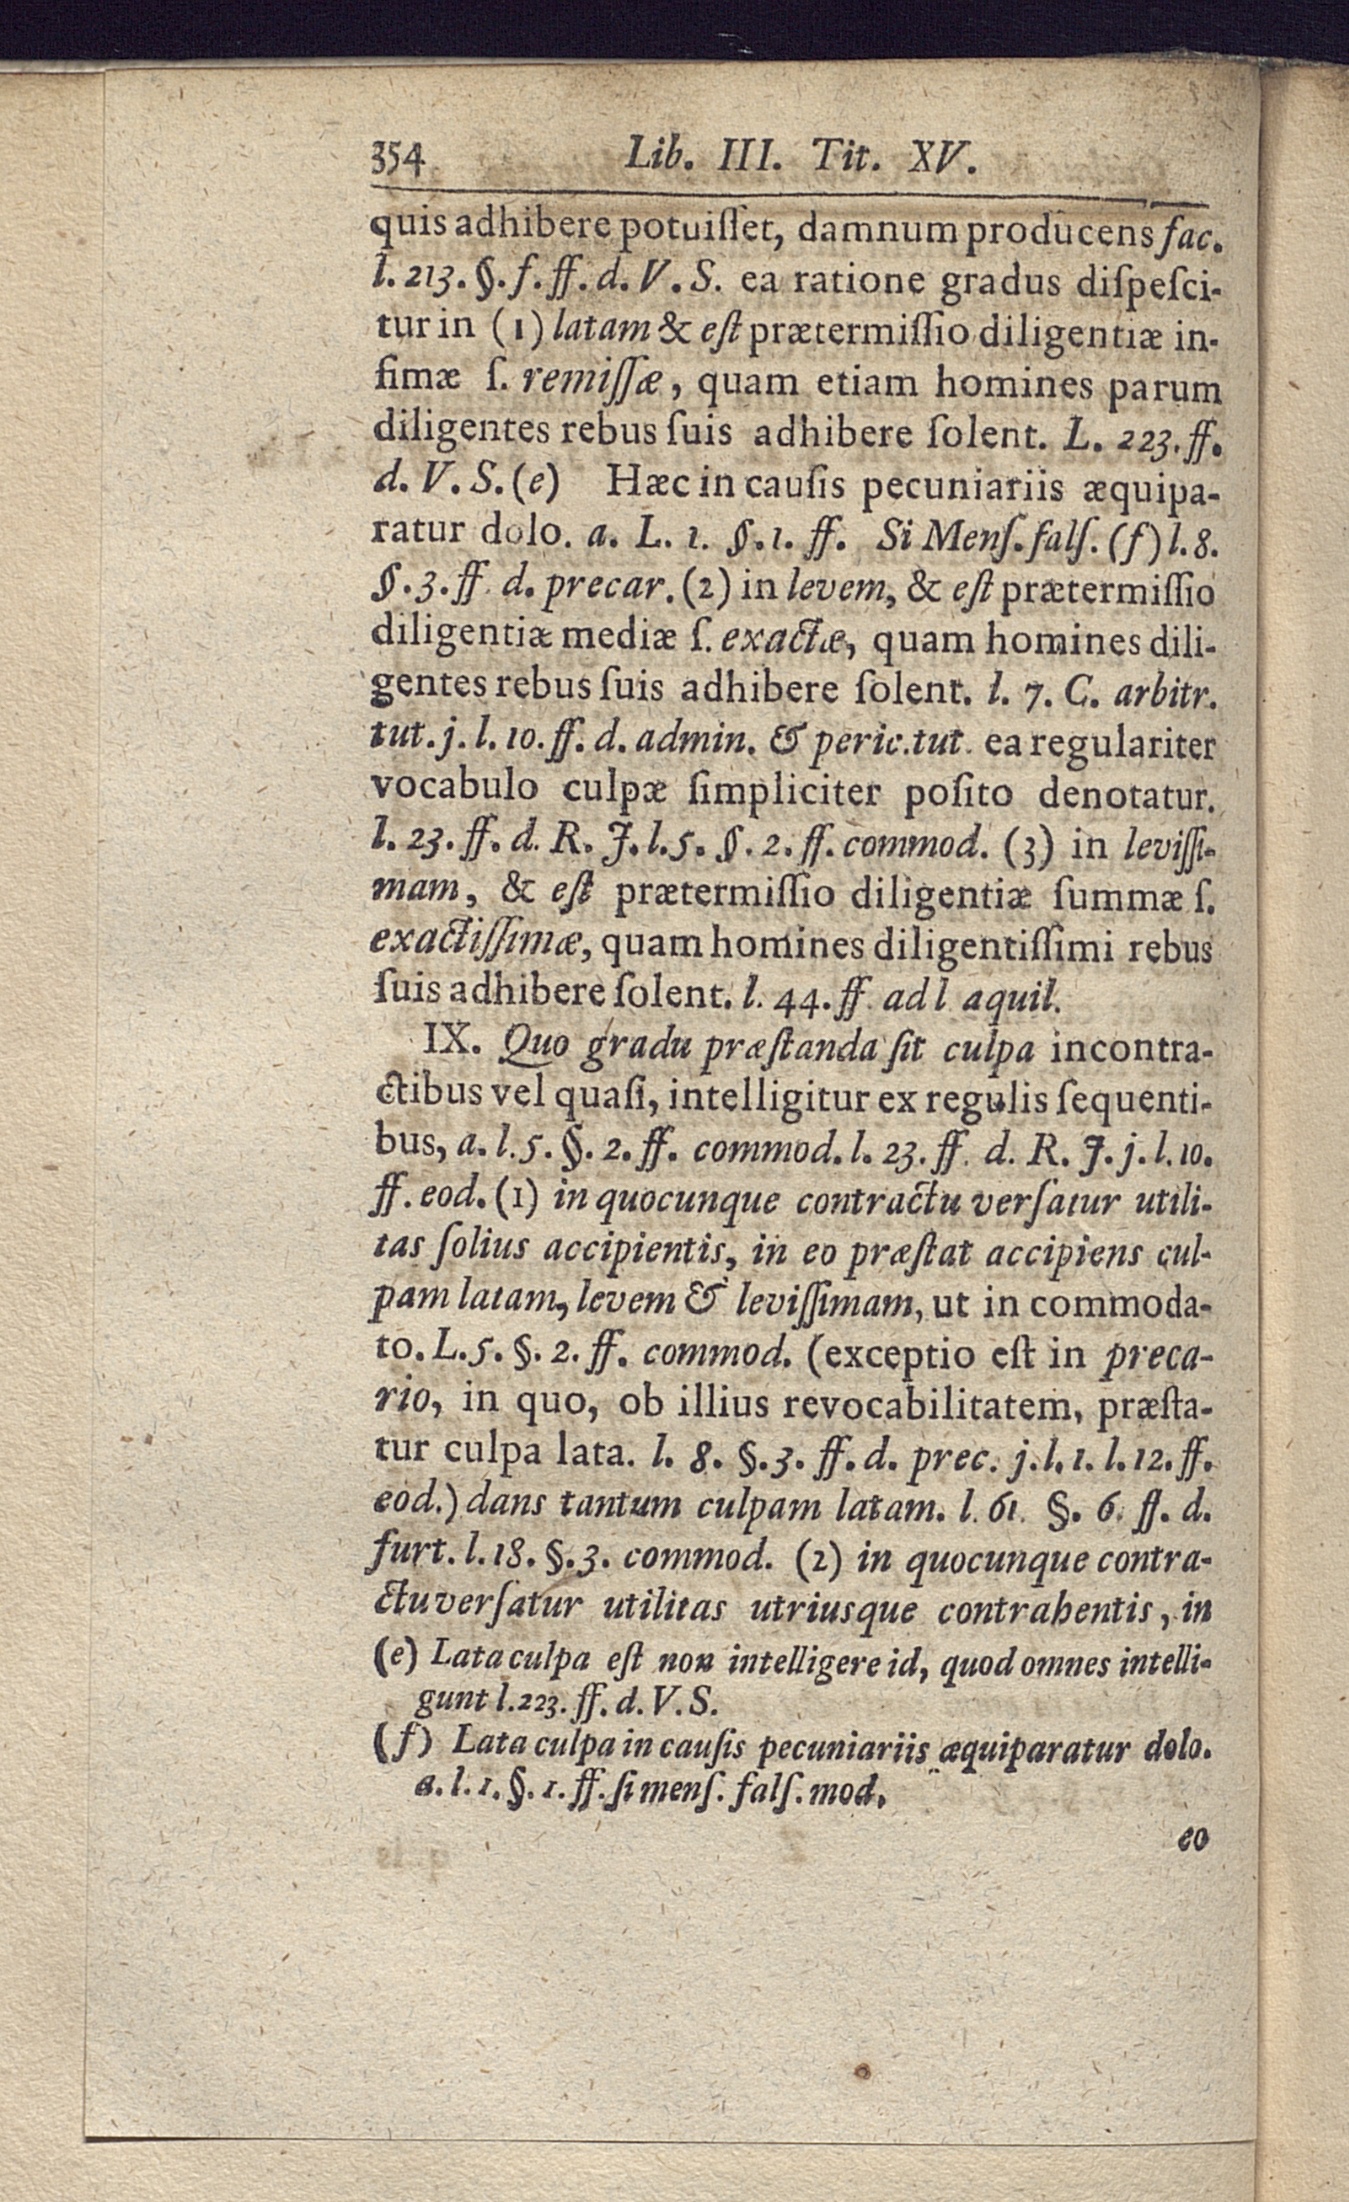 354 Lib. III. Tit. XV.
quis adhibere potuiſſet, damnum producens fac.
l. 213. §. f. ff. d. V. S. ea ratione gradus diſpeſci-
tur in (1) latam & eſt prætermiſſio diligentiæ in-
fimæ ſ. remiſſæ, quam etiam homines parum
diligentes rebus ſuis adhibere ſolent. L. 223. ff.
d. V. S. (e) Hæc in cauſis pecuniariis æquipa-
ratur dolo. a. L. 1. §. 1. ff. Si Menſ. falſ. (f) l. 8.
§. 3. ff. d. precar. (2) in levem, & eſt prætermiſſio
diligentiæ mediæ ſ. exactæ, quam homines dili-
gentes rebus ſuis adhibere ſolent. l. 7. C. arbitr.
tut. j. l. 10. ff. d. admin. & peric. tut. ea regulariter
vocabulo culpæ ſimpliciter poſito denotatur.
l. 23. ff. d. R. J. l. 5. §. 2. ff. commod. (3) in leviſſi-
mam, & eſt prætermiſſio diligentiæ ſummæ ſ.
exactiſſimæ, quam homines diligentiſſimi rebus
ſuis adhibere ſolent. l. 44. ff. ad l aquil.
IX. Quo gradu præſtanda ſit culpa in contra-
ctibus vel quaſi, intelligitur ex regulis ſequenti-
bus, a. l. 5. §. 2. ff. commod. l. 23. ff. d. R. J. j. l. 10.
ff. eod. (1) in quocunque contractu verſatur utili-
tas ſolius accipientis, in eo præſtat accipiens cul-
pam latam, levem & leviſſimam, ut in commoda-
to. L. 5. §. 2. ff. commod. (exceptio eſt in preca-
rio, in quo, ob illius revocabilitatem, præſta-
tur culpa lata. l. 8. §. 3. ff. d. prec. j. l. 1. l. 12. ff.
eod.) dans tantum culpam latam. l. 61. §. 6. ff. d.
furt. l. 18. §. 3. commod. (2) in quocunque contra-
ctu verſatur utilitas utriusque contrahentis, in
(e) Lata culpa eſt non intelligere id, quod omnes intelli-
gunt l. 223. ff. d. V. S.
(f) Lata culpa in cauſis pecuniariis æquiparatur dolo.
a. l. 1. §. 1. ff. ſi menſ. falſ. mod.
eo